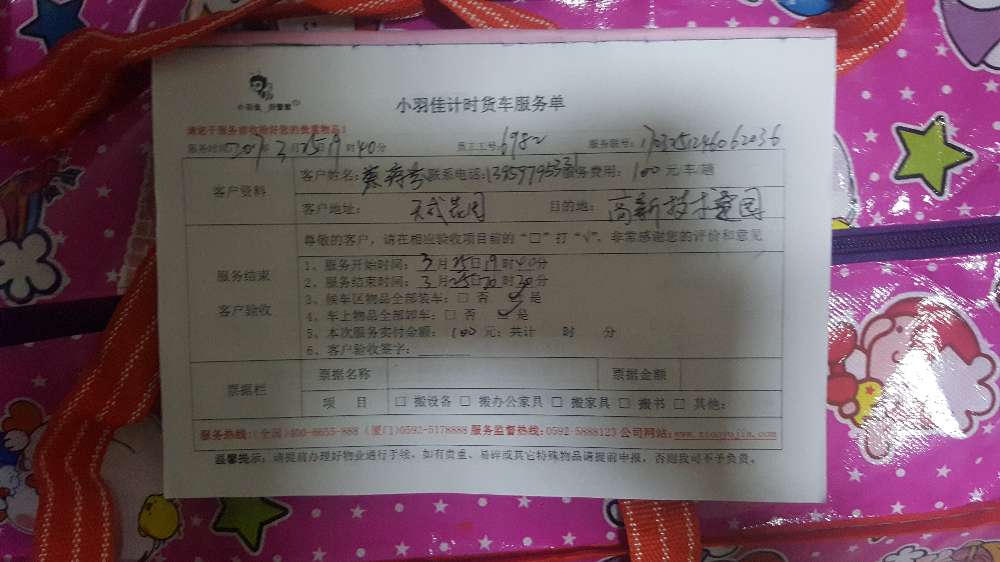 小羽佳计时货车服务单
服务时间 3月25日19时40分 员工工号:6982 服务账号:
客户资料
客户姓名: 联系电话: 服务费用:100元车/趟
客户地址: 花园 目的地:高新技术
尊敬的客户,请在相应验收项目前的“□”打“√”,非常感谢您的评价和意见
服务结束
客户验收
1、服务开始时间:3月25日19时40分
2、服务结束时间:3月25日20时30分
3、候车区物品全部装车:□ 否 ✓是
4、车上物品全部卸车:□ 否 ✓是
5、本次服务实付金额:100元;共计 时 分
6、客户验收签字:
票据栏
票据名称 票据金额
项 目 □ 搬设备 □ 搬办公家具 □ 搬家具 □ 搬书 □ 其他:
服务热线:(全国)400-6655-888 (厦门)0592-5178888 服务监督热线:0592-5888123 公司网站:www.xiaoyujia.com
温馨提示:请提前办理好物业进行手续,如有贵重、易碎或其它特殊物品请提前申报,否则我司不予负责。